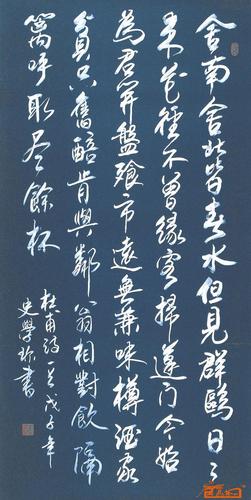 舍南舍北皆春水但見群鷗日々
来花徑不曾緣客掃蓬門今始
為君開盤飧市遠無兼味樽酒家
貧只舊醅肯與鄰翁相對飲隔
籬呼取尽餘杯
杜甫詩戊子年
史學書